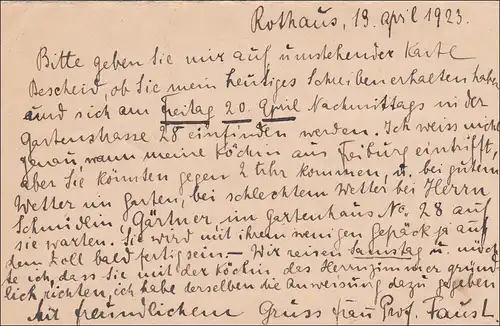 Rothaus, 13. April 1923.
Bitte geben Sie mir auf umstehender Karte
Bescheid, ob Sie mein heutiges Schreiben erhalten haben
und sich am Freitag 20. April Nachmittags in der
Gartenstrasse 28 einfinden werden. Ich weiss nicht
genau, wann meine Köchin aus Freiburg eintrifft,
aber Sie könnten gegen 2 Uhr kommen, u. bei gutem
Wetter im Garten, bei schlechtem Wetter bei Herrn
Schmidlin, Gärtner im Gartenhaus No. 28 auf
sie warten. Sie wird mit ihrem wenigen Gepäck ja auf
dem Zoll bald fertig sein – Wir reisen Samstag u. möch-
te ich, dass Sie mit der Köchin das Herrnzimmer gründ-
lich richten, ich habe derselben die Anweisung dazu gegeben
Mit freundlichem Gruss Frau Prof. Faust